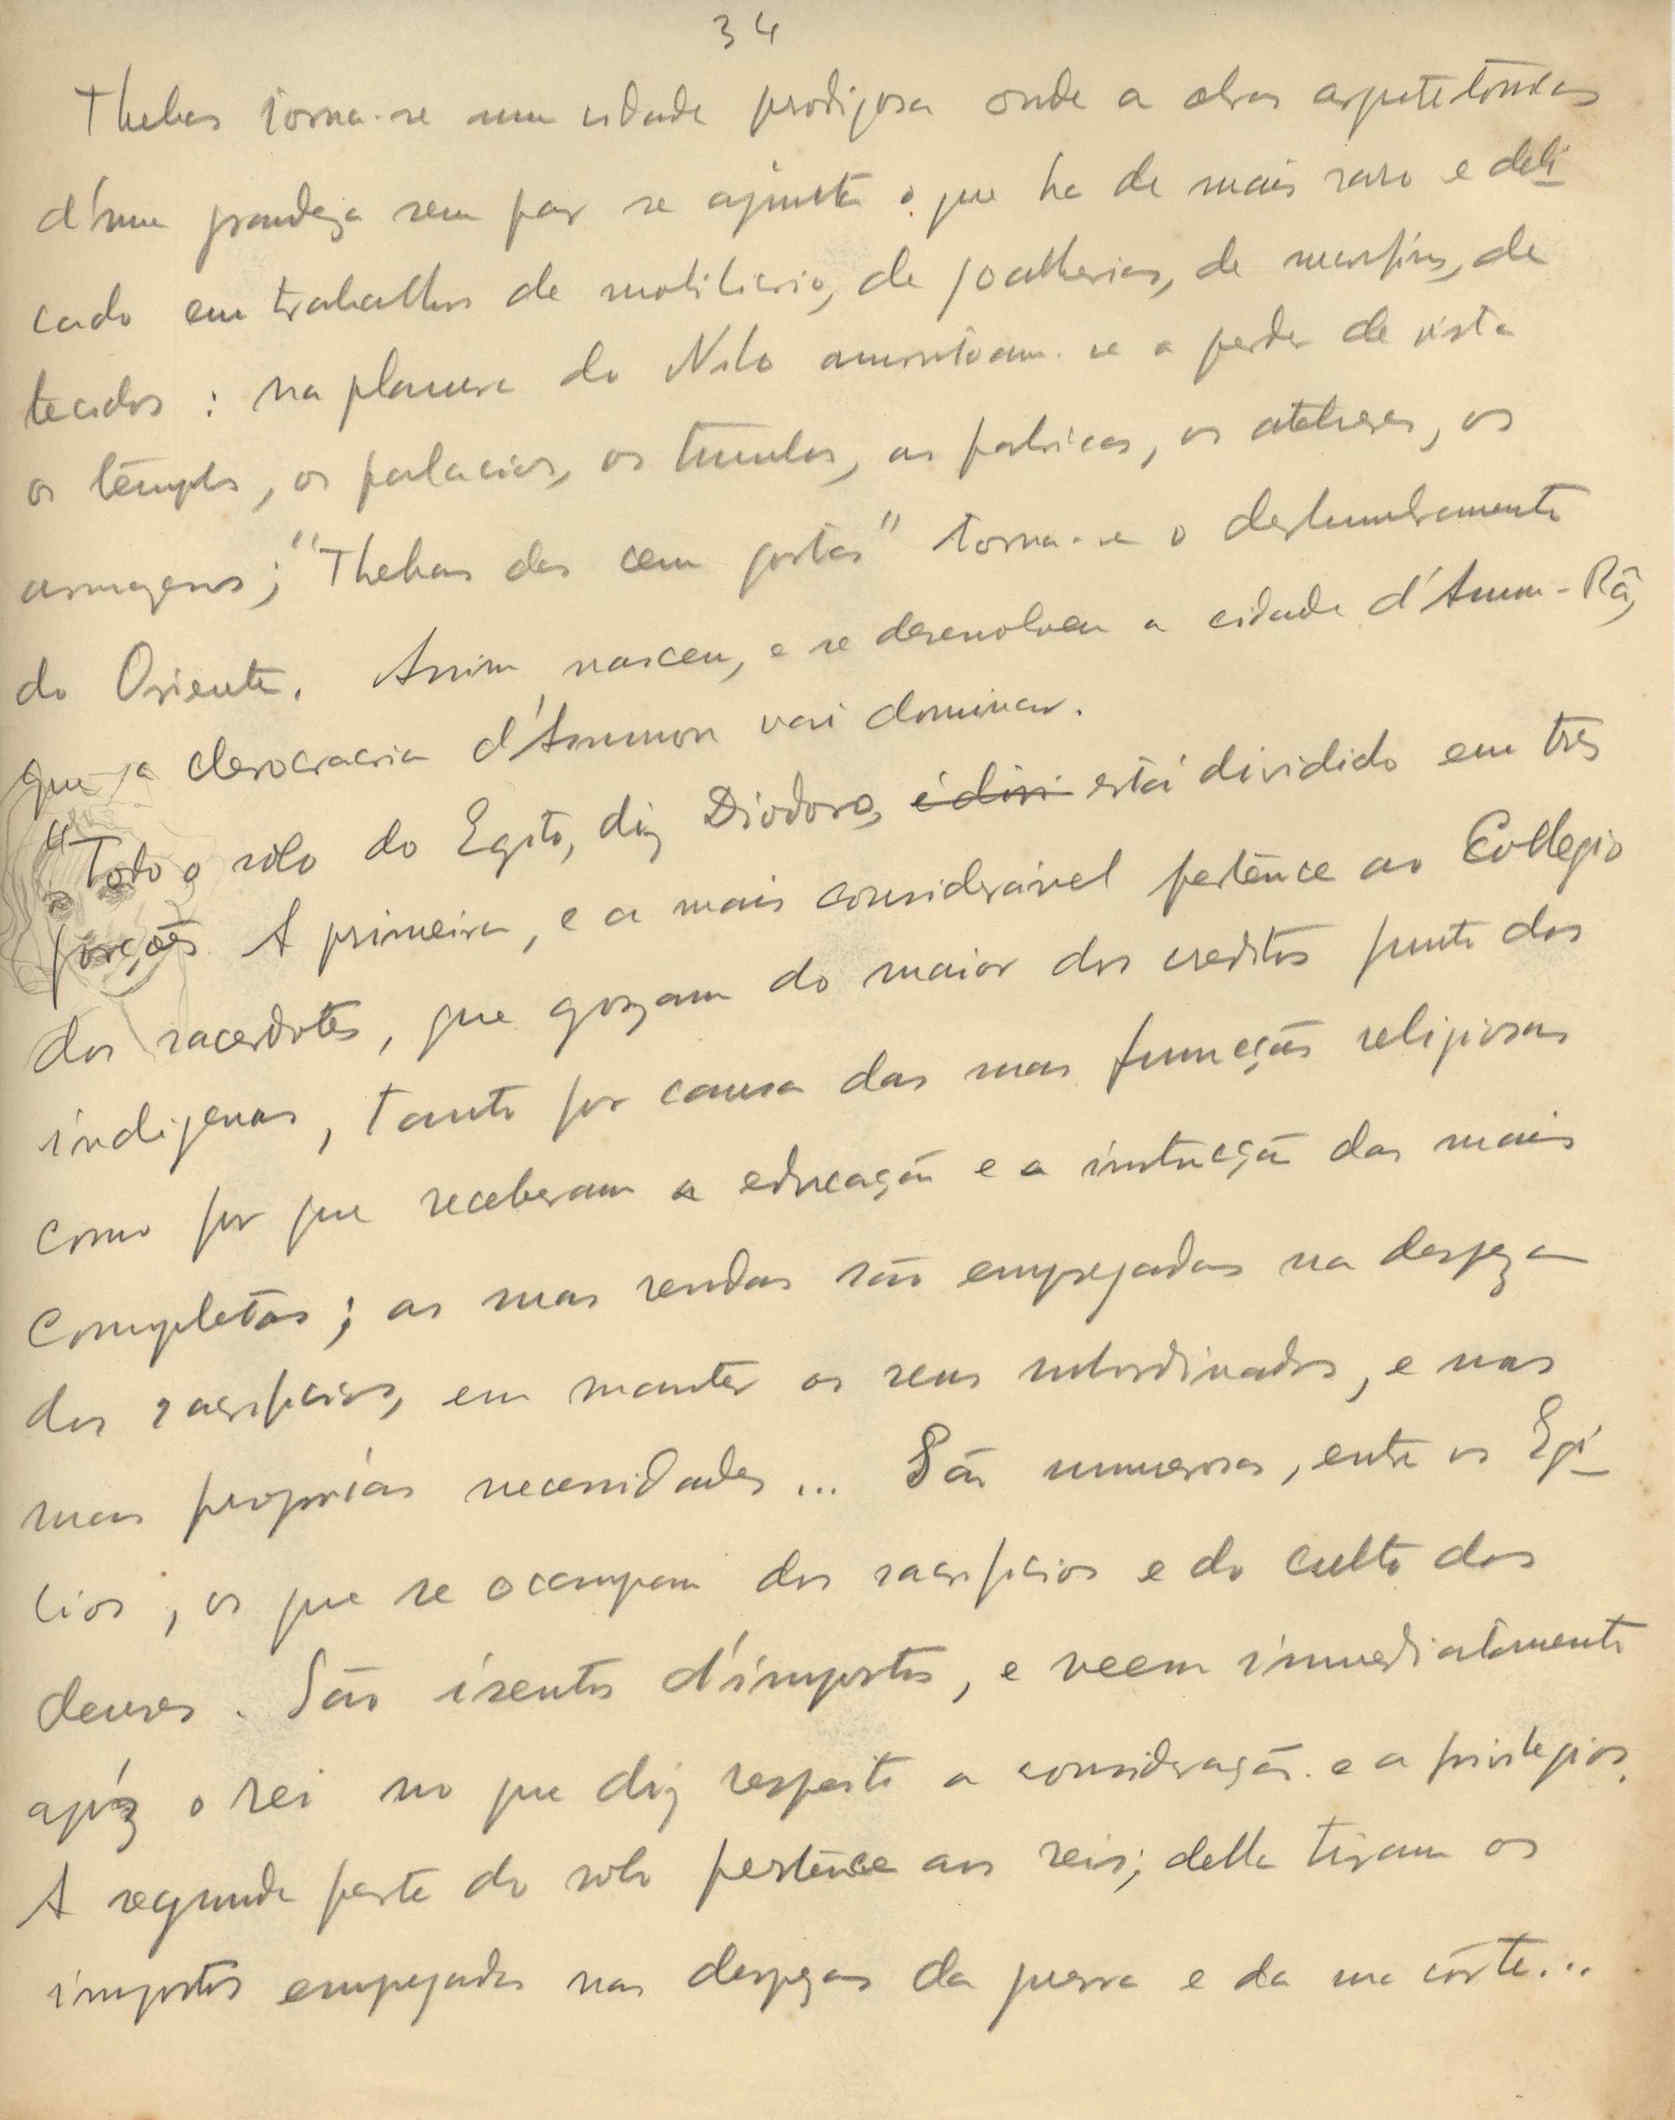 34
Thebas torna-se uma cidade prodigosa onde a obras arquitetónicas
d'uma grandeza sem par se ajunta o que ha de mais raro e deli-
cado em trabalhos de mobiliario, de joalherias, de marfins, de
tecidos : na planura do Nilo amontoam-se a perder de vista
os templos, os palacios, os tumulos, as fabricas, os atelieres, os
armazens; "Thebas das cem portas" torna-se o deslumbramento
do Oriente. Assim nasceu, e se desenvolveu a cidade d'Amon-Râ,
que a clerocracia d'Ammon vai dominar.
"Todo o solo do Egito, diz Diodoro, é divi está dividido em três
porções. A primeira, e a mais considerável pertence ao Collegio
dos sacerdotes, que gozam do maior dos creditos junto dos
indigenas, tanto por causa das suas funcções religiosas
como por que receberam a educação e a instrucção das mais
completas; as suas rendas são empregadas na despeza
dos sacrificios, em manter os seus subordinados, e nas
suas proprias necessidades... São numerosos, entre os Egi-
cios, os que se occupam dos sacrificios e do culto dos
deuses. São isentos d'impostos, e veem immediatamente
apóz o rei no que diz respeito a consideração e a privilegios.
A segunda parte do solo pertence aos reis; della tiram os
impostos empregados nas despezas da guerra e da sua côrte...